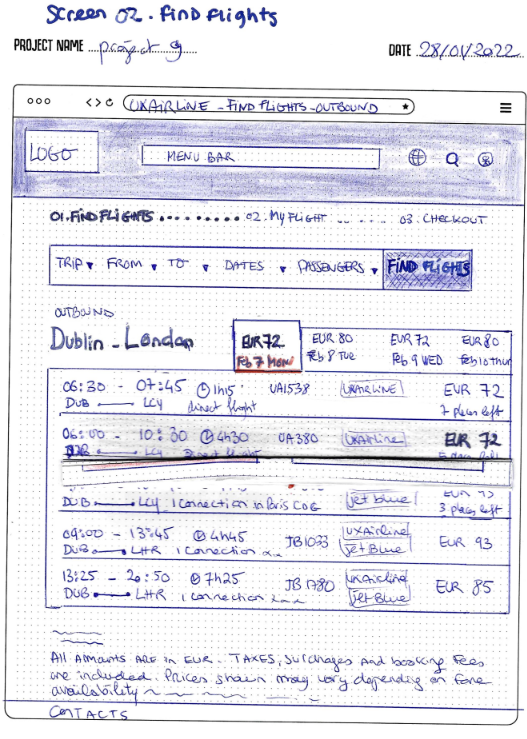 Screen 02. Find Flights
PROJECT NAME project 9
DATE 28/01/2022
UXAIRLINE - FIND FLIGHTS - OUTBOUND
LOGO
MENU BAR
01. FIND FLIGHTS 02. My FLIGHT 03. CHECKOUT
TRIP FROM TO DATES PASSENGERS FIND FLIGHTS
OUTBOUND
Dublin - London
EUR 72 EUR 80 EUR 72 EUR 80
Feb 7 MON Feb 8 TUE Feb 9 WED Feb 10 Thur
06:30 - 07:45 1h15 UA1538 UXAIRLINE EUR 72
DUB LCY direct flight 7 places left
06:00 - 10:30 4h30 UA380 UXAirline EUR 72
DUB LCY Direct flight
DUB LCY 1 Connection in Paris CDG Jet blue 3 places left
09:00 - 13:45 4h45 JB1033 UXAirline EUR 93
DUB LHR 1 Connection Jet Blue
13:25 - 20:50 7h25 JB1780 UXAirline EUR 85
DUB LHR 1 connection Jet Blue
All Amounts ARE in EUR. TAXES, Surcharges And booking Fees
are included. Prices shown may vary depending on fare
availability
CONTACTS